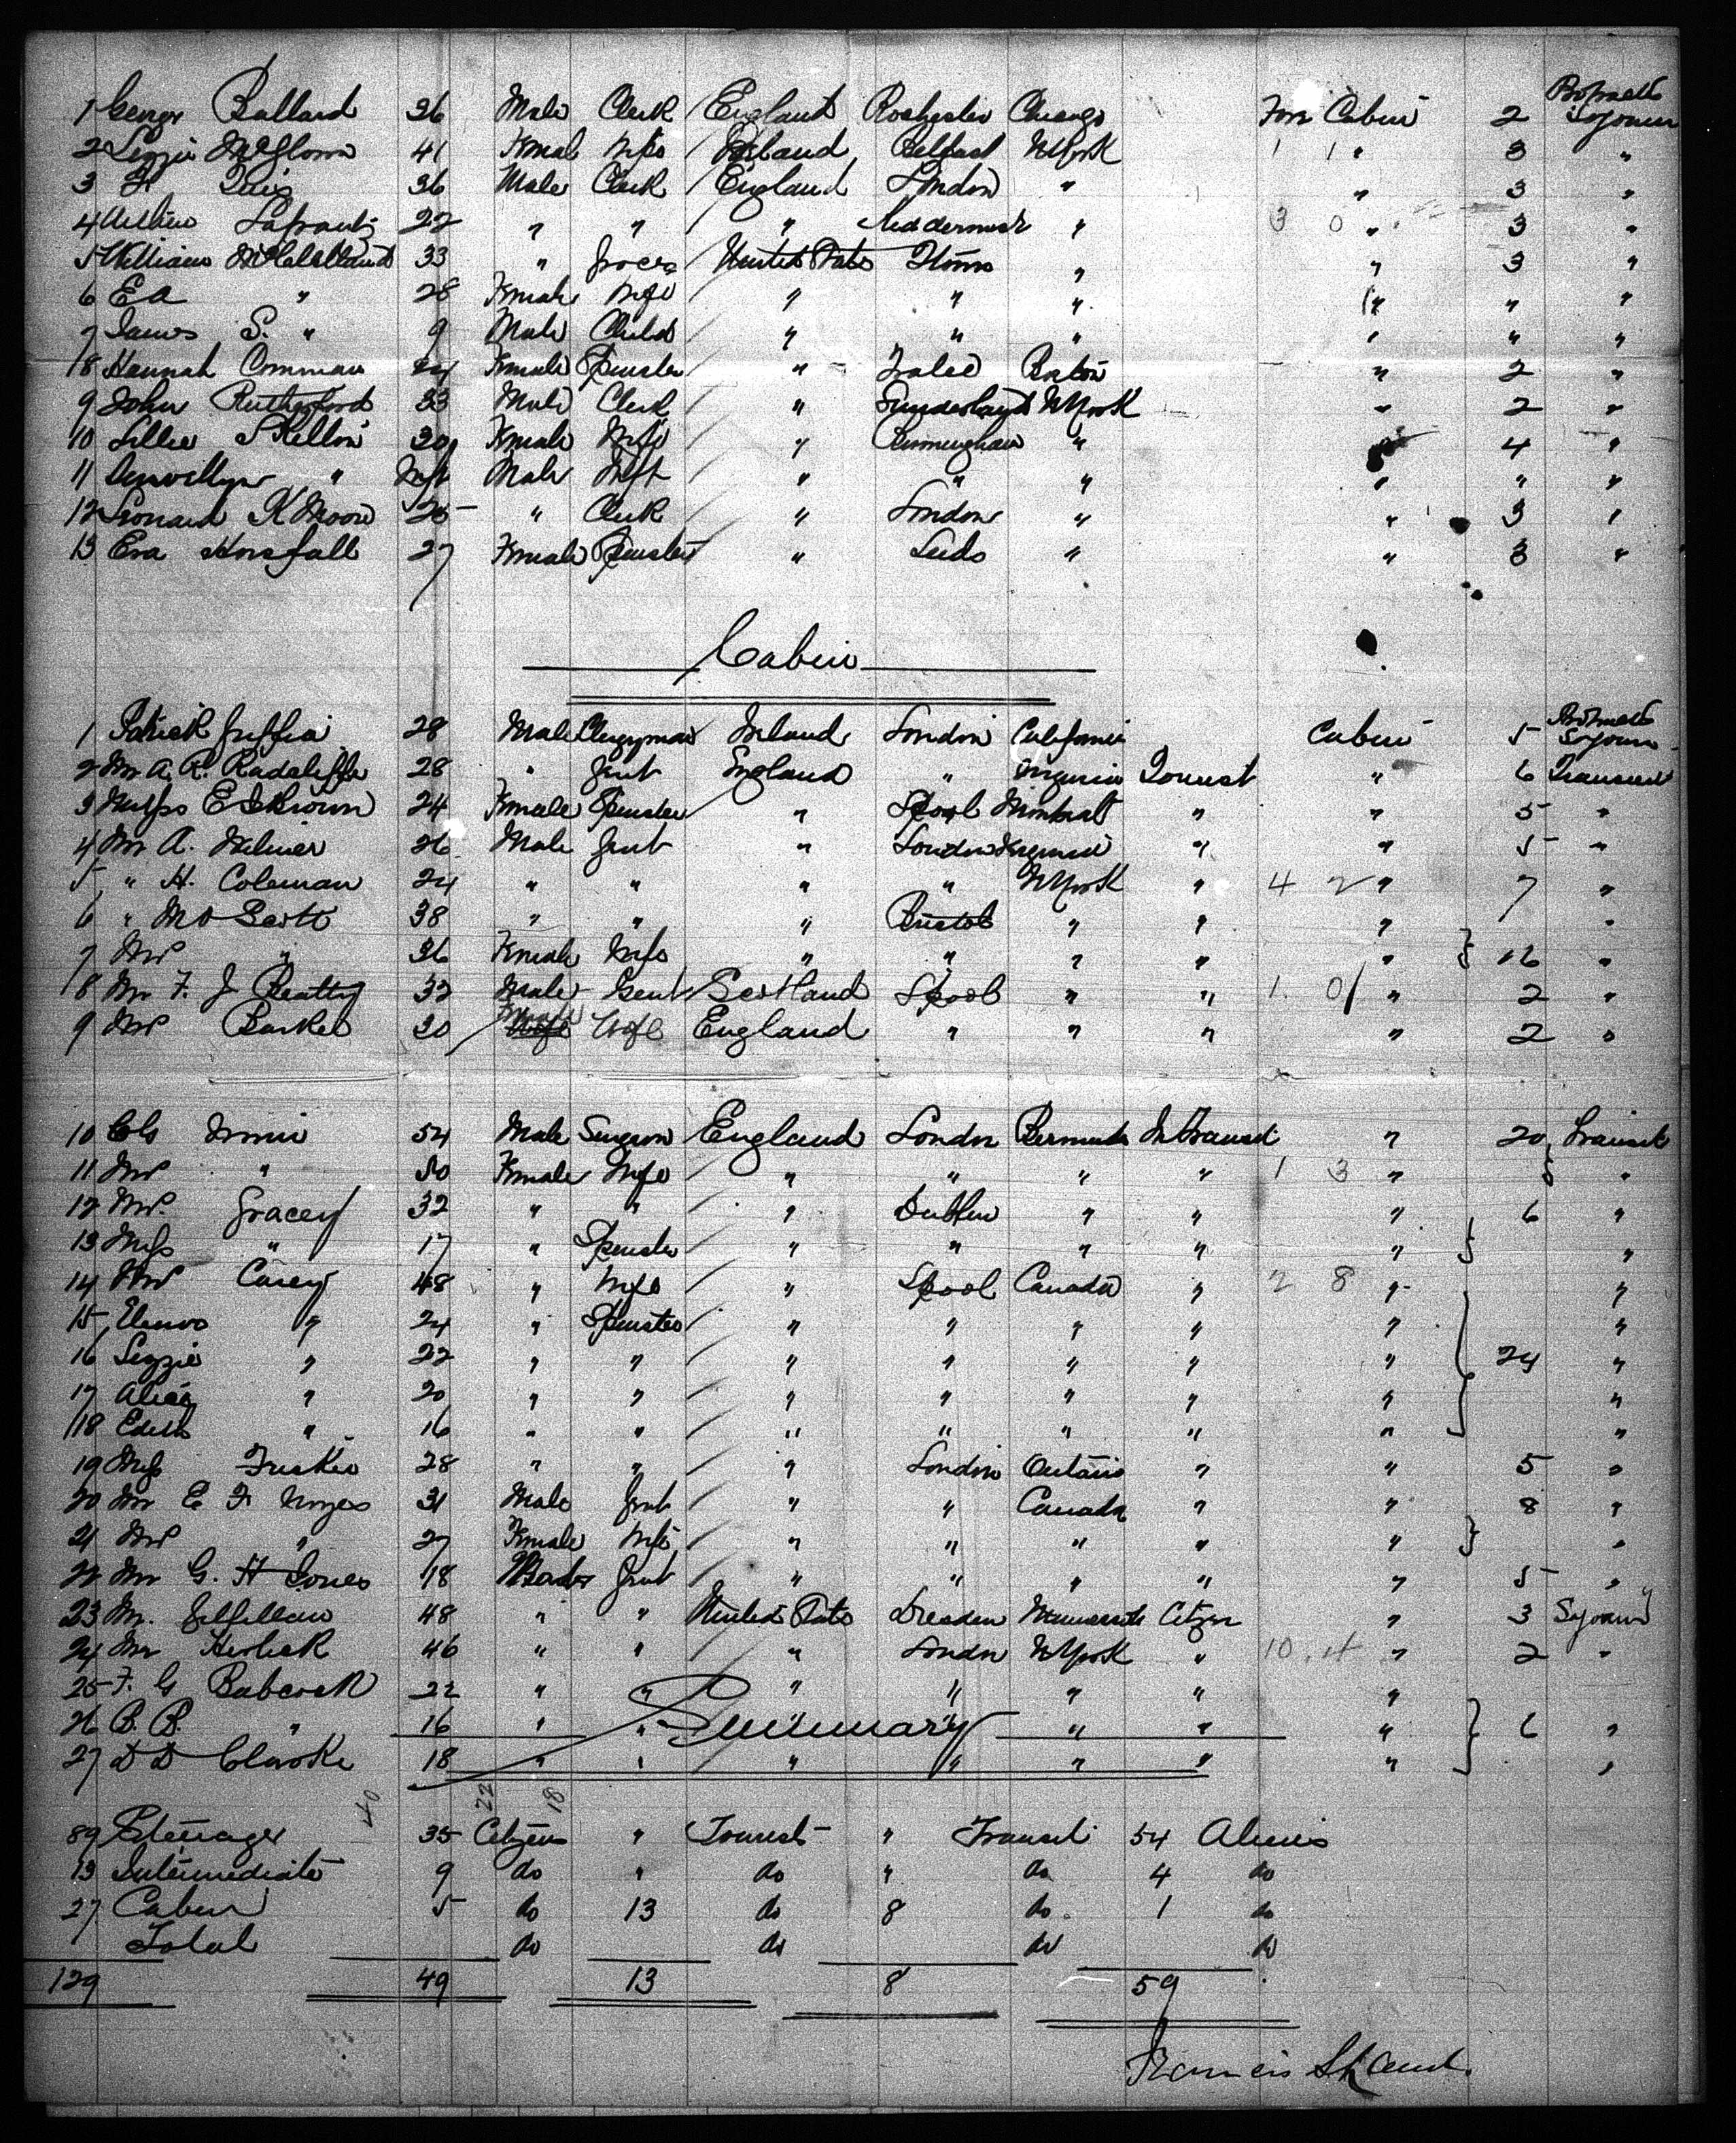 1 George Ballard 26 Male Clerk England Rochester Chicago Fore Cabin 2 Protracted Sojourn
2 Lizzie 41 Female Wife Ireland Belfast N York 1 1 " 3 "
3 36 Male Clerk England London " " 3 "
4 22 " " " " 3 0 " 3 "
5 William 33 " Grocer United States " " 3 "
6 E A " 28 Female Wife " " " " " "
7 James S. " 9 Male Child " " " " " "
8 Hannah 24 Female Spinster " Tralee Boston " 2 "
9 John Rutherford 33 Male Clerk " Sunderland N York " 2 "
10 Lillie Skelton 30 Female Wife " Birmingham " " 4 "
11 " Inft Male Inft " " " " " "
12 Leonard K Moore 25 " Clerk " London " " 3 "
13 Eva Horsfall 27 Female Spinster " Leeds " " 3 "
Cabin
1 Patrick Griffin 28 Male Clergyman Ireland London California Cabin 5 Protracted Sojourn
2 Mr A. R. Radcliffe 28 " Gent England " Virginia Tourist " 6 Transient
3 Miss E 24 Female Spinster " L'pool Montreal " " 5 "
4 Mr A. Milner 26 Male Gent " London Virginia " " 5 "
5 " H. Coleman 24 " " " " N York " 4 2 " 7 "
6 " M O Scott 38 " " " Bristol " " " "
7 Mrs " 36 Female Wife " " " " " 16 "
8 Mr F. J Beatty 32 Male Gent Scotland L'pool " " 1 0 " 2 "
9 Mrs Barker 30 Female Wife England " " " " 2 "
10 54 Male Surgeon England London Bermuda In Transit " 20 Transit
11 Mrs " 50 Female Wife " " " " 1 3 " 5 "
12 Mrs. Gracey 32 " " " Dublin " " " 6 "
13 Miss " 17 " Spinster " " " " " "
14 Mrs Carey 48 " Wife " L'pool Canada " 2 8 " "
15 " 24 " Spinster " " " " " "
16 Lizzie " 22 " " " " " " " 24 "
17 Alice " 20 " " " " " " " "
18 Edith " 16 " " " " " " " "
19 Miss 28 " " " London Ontario " " 5 "
20 Mr E F Noyes 31 Male Gent " " Canada " " 8 "
21 Mrs " 27 Female Wife " " " " " "
22 Mr G. H Jones 18 Male Gent " " " " " 5 "
23 Mr. Gilfillan 48 " " United States Dresden Citzn " 3 Sojourn
24 Mr 46 " " " London N York " 10 4 " 2 "
25 F. G Babcock 22 " " " " " " "
26 B. B. " 16 " " " " " " " 6 "
Summary
27 D D Clarke 18 " " " " " " " "
40 22 18
89 Steerage 35 Citizens " Tourist " Transit 54 Aliens
13 Intermediate 9 do " do " do 4 do
27 Cabin 5 do 13 do 8 do 1 do
Total do do do do
129 49 13 8 59
Francis